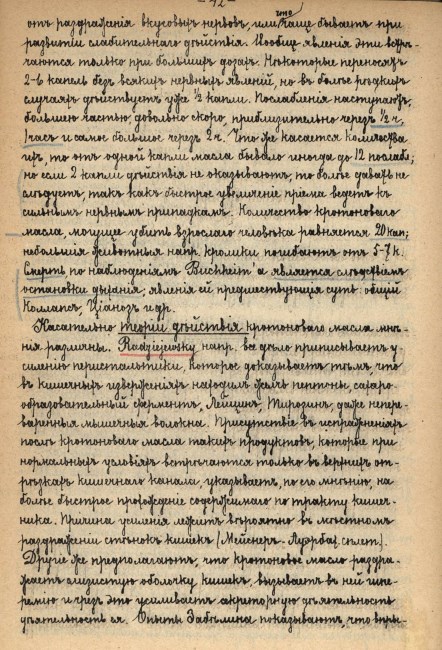 — 42 —
отъ раздраженія вкусовыхъ нервовъ, или что чаще бываетъ при
развитіи слабительнаго дѣйствія. Вообще явленія эти встрѣ-
чаются только при большихъ дозахъ. Некоторые переносятъ
2-6 капель безъ всякихъ нервныхъ явленій, но въ болѣе рѣдкихъ
случаяхъ дѣйствуетъ уже ½ капли. Послабленія наступаютъ,
большею частью, довольно скоро, приблизительно черезъ ½ ч.,
1 часъ и самое большое черезъ 2 ч. Что же касается количества
ихъ, то отъ одной капли масла бывало иногда до 12 послабл;
но если 2 капли дѣйствія не оказываютъ, то болѣе давать не
слѣдуетъ, такъ какъ быстрое увеличеніе пріема ведетъ къ
сильнымъ нервнымъ припадкамъ. Количество кротоноваго
масла, могущее убить взрослаго человѣка равняется 20 кап;
небольшія животныя напр. кролики погибаютъ отъ 5-7 к.
Смерть по наблюденіямъ Buchheim'a является слѣдствіемъ
остановки дыханія; явленія ей предшествующія суть: общій
коллапсъ, ціанозъ и др.
Касательно теоріи дѣйствія кротоноваго масла мнѣ-
нія различны. Radziejewsky напр. все дѣло приписываетъ у-
силенію перистальтики, которое доказываетъ тѣмъ, что
въ кишечныхъ изверженіяхъ находилъ желчь, пептоны, сахаро-
образовательный ферментъ, Лейцинъ, Тирозинъ, даже непере-
варенныя мышечныя волокна. Присутствіе въ испражненіяхъ
послѣ кротоноваго масла такихъ продуктовъ, которые при
нормальныхъ условіяхъ встрѣчаются только въ верхнихъ от-
рѣзкахъ кишечнаго канала указываетъ, по его мнѣнію, на
болѣе быстрое прохожденіе содержимаго по тракту кишеч-
ника. Причина усиленія лежитъ вѣроятно въ мѣстномъ
раздраженіи стѣнокъ кишекъ (Мейснер-Ауэрбах. сплет.).
Другіе же предполагаютъ, что кротоновое масло раздра-
жаетъ слизистую оболочку кишекъ, вызываетъ въ ней гипе-
ремію и чрезъ это усиливаетъ секреторную дѣятельность
дѣятельность ея. Опыты Забѣлина показываютъ, что впры-